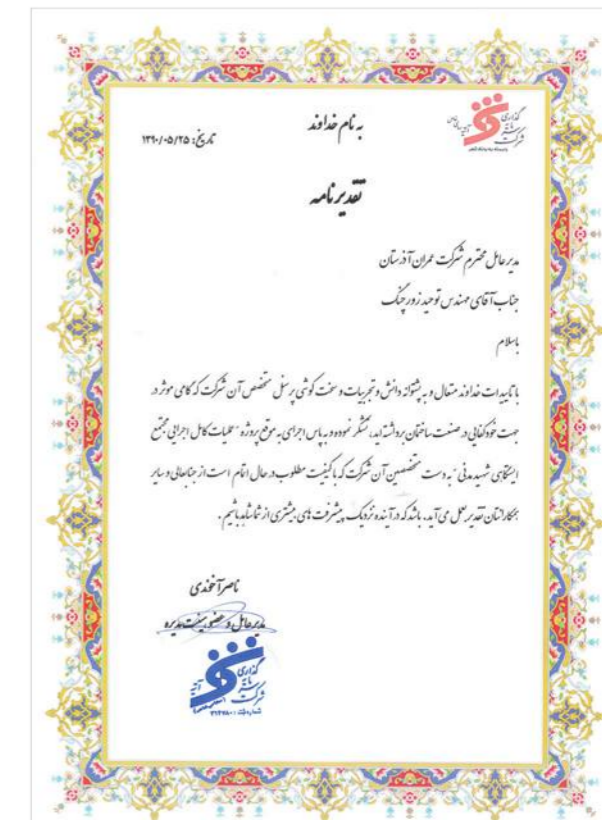 به نام خداوند
تاریخ: ۱۳۹۰/۰۵/۲۵
شرکت سرمایه گذاری
تقدیرنامه
مدیر عامل محترم شرکت عمران آذرستان
جناب آقای مهندس توحید زورچنگ
باسلام
با تاییدات خداوند متعال و به پشتوانه دانش و تجربیات و سخت کوشی پرسنل متخصص آن شرکت که گامی موثر در
جهت خودکفایی در صنعت ساختمان برداشته اید، تشکر نموده و به پاس اجرای به موقع پروژه "عملیات کامل اجرایی مجتمع
ایستگاهی شهید مدنی" به دست متخصصین آن شرکت که با کیفیت مطلوب در حال اتمام است از جنابعالی و سایر
همکارانتان تقدیر بعمل می آید. باشد که در آینده نزدیک پیشرفت های بیشتری از شما شاهد باشیم.
ناصر آخوندی
مدیرعامل و عضو هیئت مدیره
شرکت سرمایه گذاری
شماره ثبت: